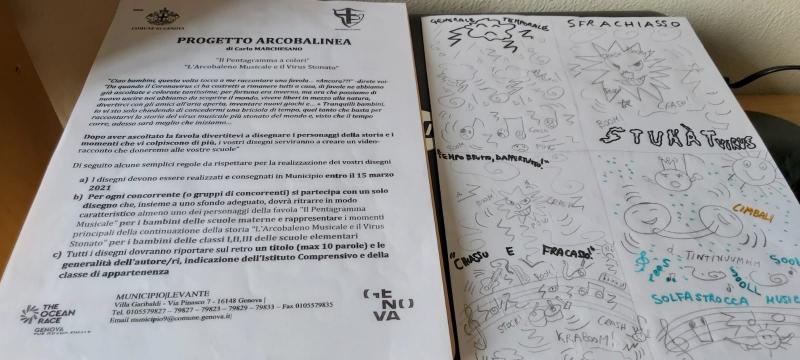 COMUNE DI GENOVA
PROGETTO ARCOBALINEA
di Carlo MARCHESANO
"Il Pentagramma a colori"
"L'Arcobaleno Musicale e il Virus Stonato"
"Ciao bambini, questa volta tocca a me raccontare una favola... «Ancora??!" -direte voi-
"Da quando il Coronavirus ci ha costretti a rimanere tutti a casa, di favole ne abbiamo
già ascoltate e colorate tantissime, per fortuna era inverno, ma ora che possiamo di
nuovo uscire noi abbiamo da scoprire il mondo, vivere liberi in mezzo alla natura,
divertirci con gli amici all'aria aperta, inventare nuovi giochi e... » Tranquilli bambini,
io vi sto solo chiedendo di concedermi una briciola di tempo, quel tanto che basta per
raccontarvi la storia del virus musicale più stonato del mondo e, visto che il tempo
corre, adesso sarà meglio che iniziamo...
Dopo aver ascoltato la favola divertitevi a disegnare i personaggi della storia e i
momenti che vi colpiscono di più, i vostri disegni serviranno a creare un video-
racconto che doneremo alle vostre scuole"
Di seguito alcune semplici regole da rispettare per la realizzazione dei vostri disegni
a) I disegni devono essere realizzati e consegnati in Municipio entro il 15 marzo
2021
b) Per ogni concorrente (o gruppi di concorrenti) si partecipa con un solo
disegno che, insieme a uno sfondo adeguato, dovrà ritrarre in modo
caratteristico almeno uno dei personaggi della favola "Il Pentagramma
Musicale" per i bambini delle scuole materne e rappresentare i momenti
principali della continuazione della storia "L'Arcobaleno Musicale e il Virus
Stonato" per i bambini delle classi I,II,III delle scuole elementari
c) Tutti i disegni dovranno riportare sul retro un titolo (max 10 parole) e le
generalità dell'autore/ri, indicazione dell'Istituto Comprensivo e della
classe di appartenenza
MUNICIPIO|LEVANTE
Villa Garibaldi - Via Pinasco 7 - 16148 Genova |
Tel. 0105579827 – 79827 – 79829 – 79833 – Fax 0105579835
Email municipio9@comune.genova.it|
THE
OCEAN
RACE
GENOVA
GENOVA
GENERALE TEMPORALE
SFRACHIASSO
CRASH
BOOM
STUKÀTVIRUS
"TEMPO BRUTO, DAPERTUTO!"
CIMBALI
"CHIASSO E FRACASSO!"
TINTINUUMMM
SOOL
SOOLL
SOLFASTROCCA MUSICA
CRASH
KRABOOM!